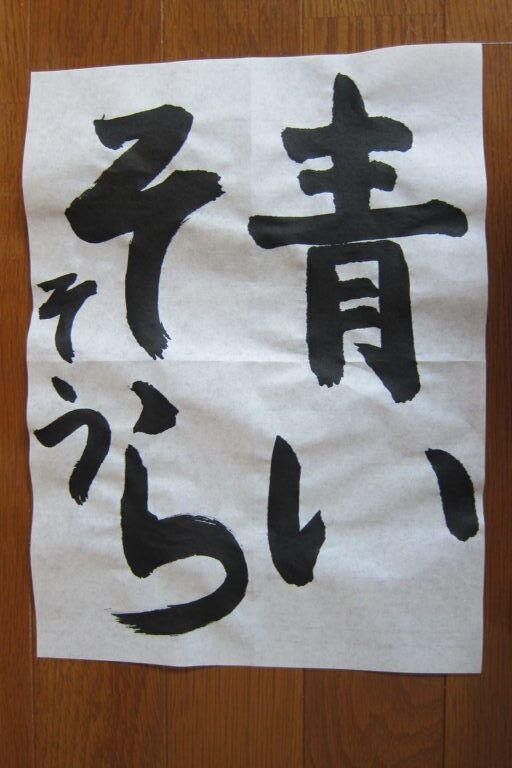 青い
そら
そう